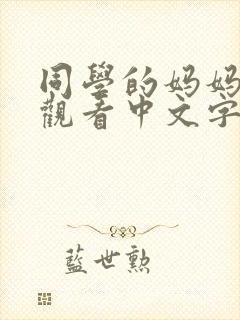 同學的妈妈
觀看中文字
藍世勲